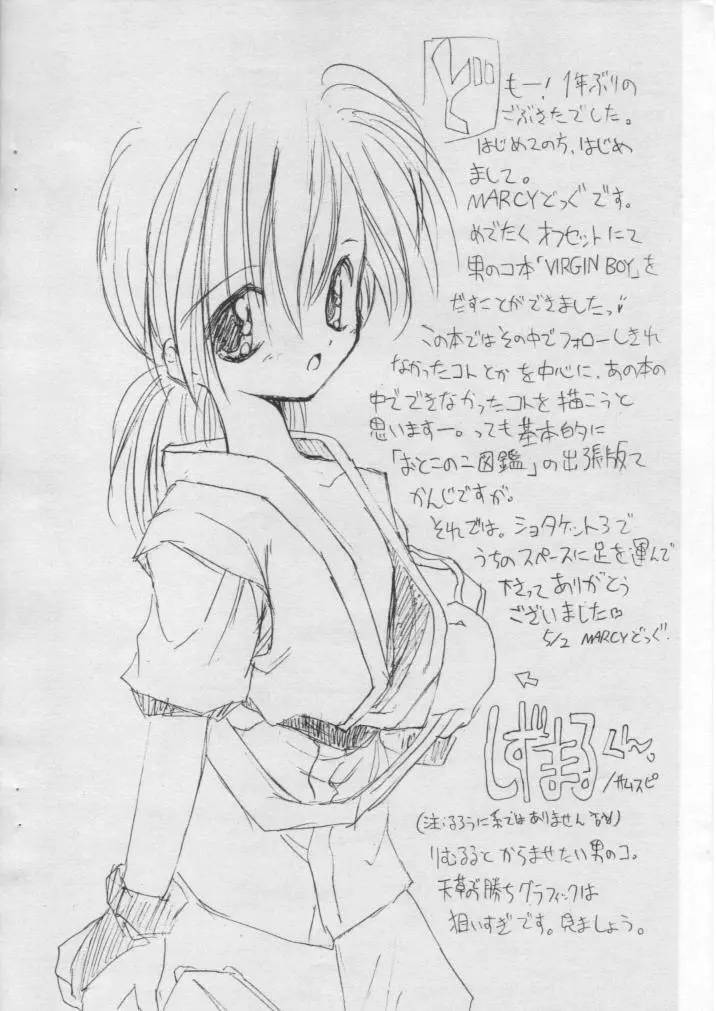 どもー！1年ぶりの
ごぶさたでした。
はじめての方、はじめ
まして。
MARCYどっぐです。
めでたくオフセットにて
男のコ本「VIRGIN BOY」を
だすことができましたっ
この本ではその中でフォローしきれ
なかったコトとかを中心に、あの本の
中でできなかったコトを描こうと
思いますー。っても基本的に
「おとこのこ図鑑」の出張版て
かんじですが。
それでは。ショタケット3で
うちのスペースに足を運んで
下さってありがとう
ございました
5/2 MARCYどっぐ.
しずまるくん。
/サムスピ
(注:るろうに系ではありません)
りむるるとからませたい男のコ。
天草の勝ちグラフィックは
狙いすぎです。見ましょう。